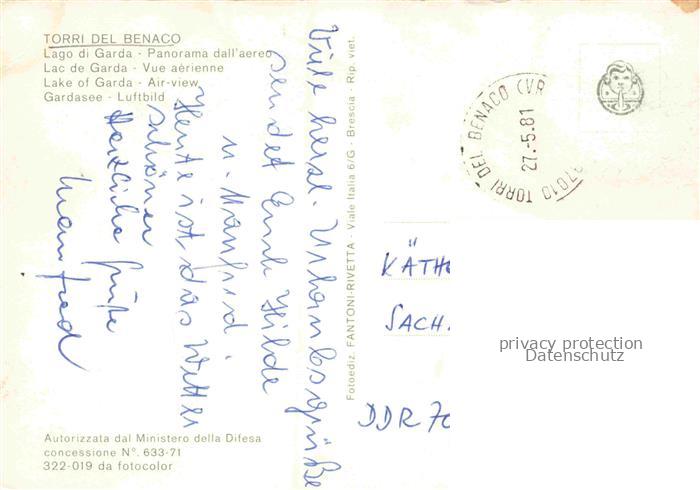 TORRI DEL BENACO
Lago di Garda - Panorama dall'aereo
Lac de Garda - Vue aérienne
Lake of Garda - Air-view
Gardasee - Luftbild
Viele herzl. Urlaubsgrüße
sendet Euch Hilde
u. Manfred.
Heute ist das Wetter
schöner
Herzliche Grüße
Manfred
Autorizzata dal Ministero della Difesa
concessione N°. 633-71
322-019 da fotocolor
Fotoediz. FANTONI-RIVETTA - Viale Italia 6/G - Brescia - Rip. viet.
37010 TORRI DEL BENACO (VR
27.-5.81
KÄTH
SACH.
DDR 70
privacy protection
Datenschutz